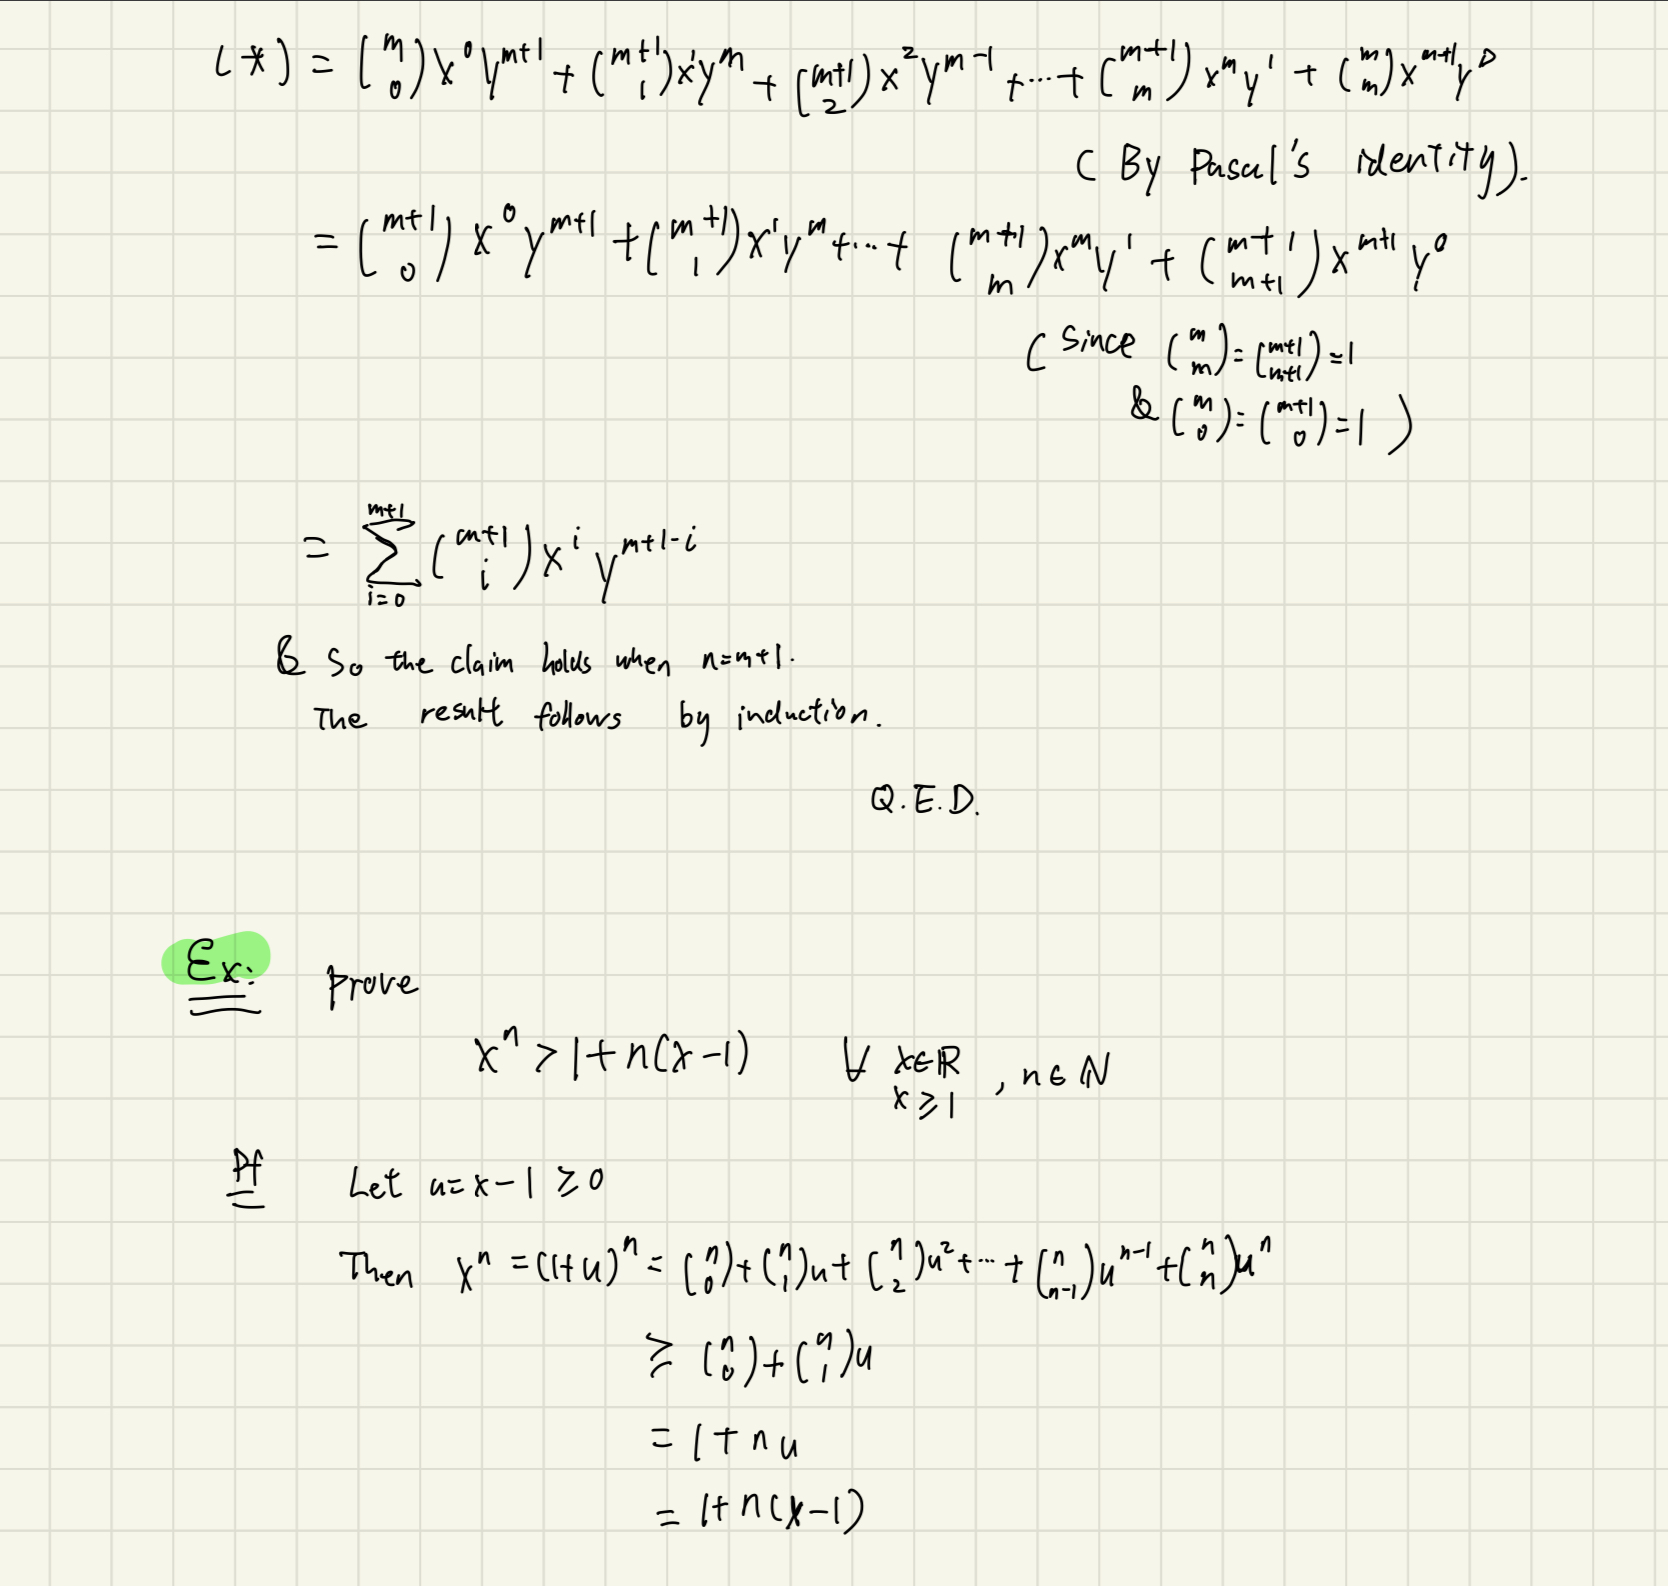 (*) = (m 0) x⁰ y^{m+1} + (m+1 1) x¹ y^m + (m+1 2) x² y^{m-1} + ⋯ + (m+1 m) x^m y¹ + (m m) x^{m+1} y⁰
( By Pasal's identity).
= (m+1 0) x⁰ y^{m+1} + (m+1 1) x¹ y^m + ⋯ + (m+1 m) x^m y¹ + (m+1 m+1) x^{m+1} y⁰
( Since (m m) = (m+1 m+1) = 1
& (m 0) = (m+1 0) = 1 )
= ∑_{i=0}^{m+1} (m+1 i) x^i y^{m+1-i}
& So the claim holds when n=m+1.
The result follows by induction.
Q.E.D.
Ex: Prove
x^n > 1+n(x-1) ∀ x∈ℝ x≥1 , n∈ℕ
Pf Let u=x-1 ≥0
Then x^n = (1+u)^n = (n 0) + (n 1)u + (n 2)u² + ⋯ + (n n-1)u^{n-1} + (n n)u^n
≥ (n 0) + (n 1)u
= 1+nu
= 1+n(x-1)